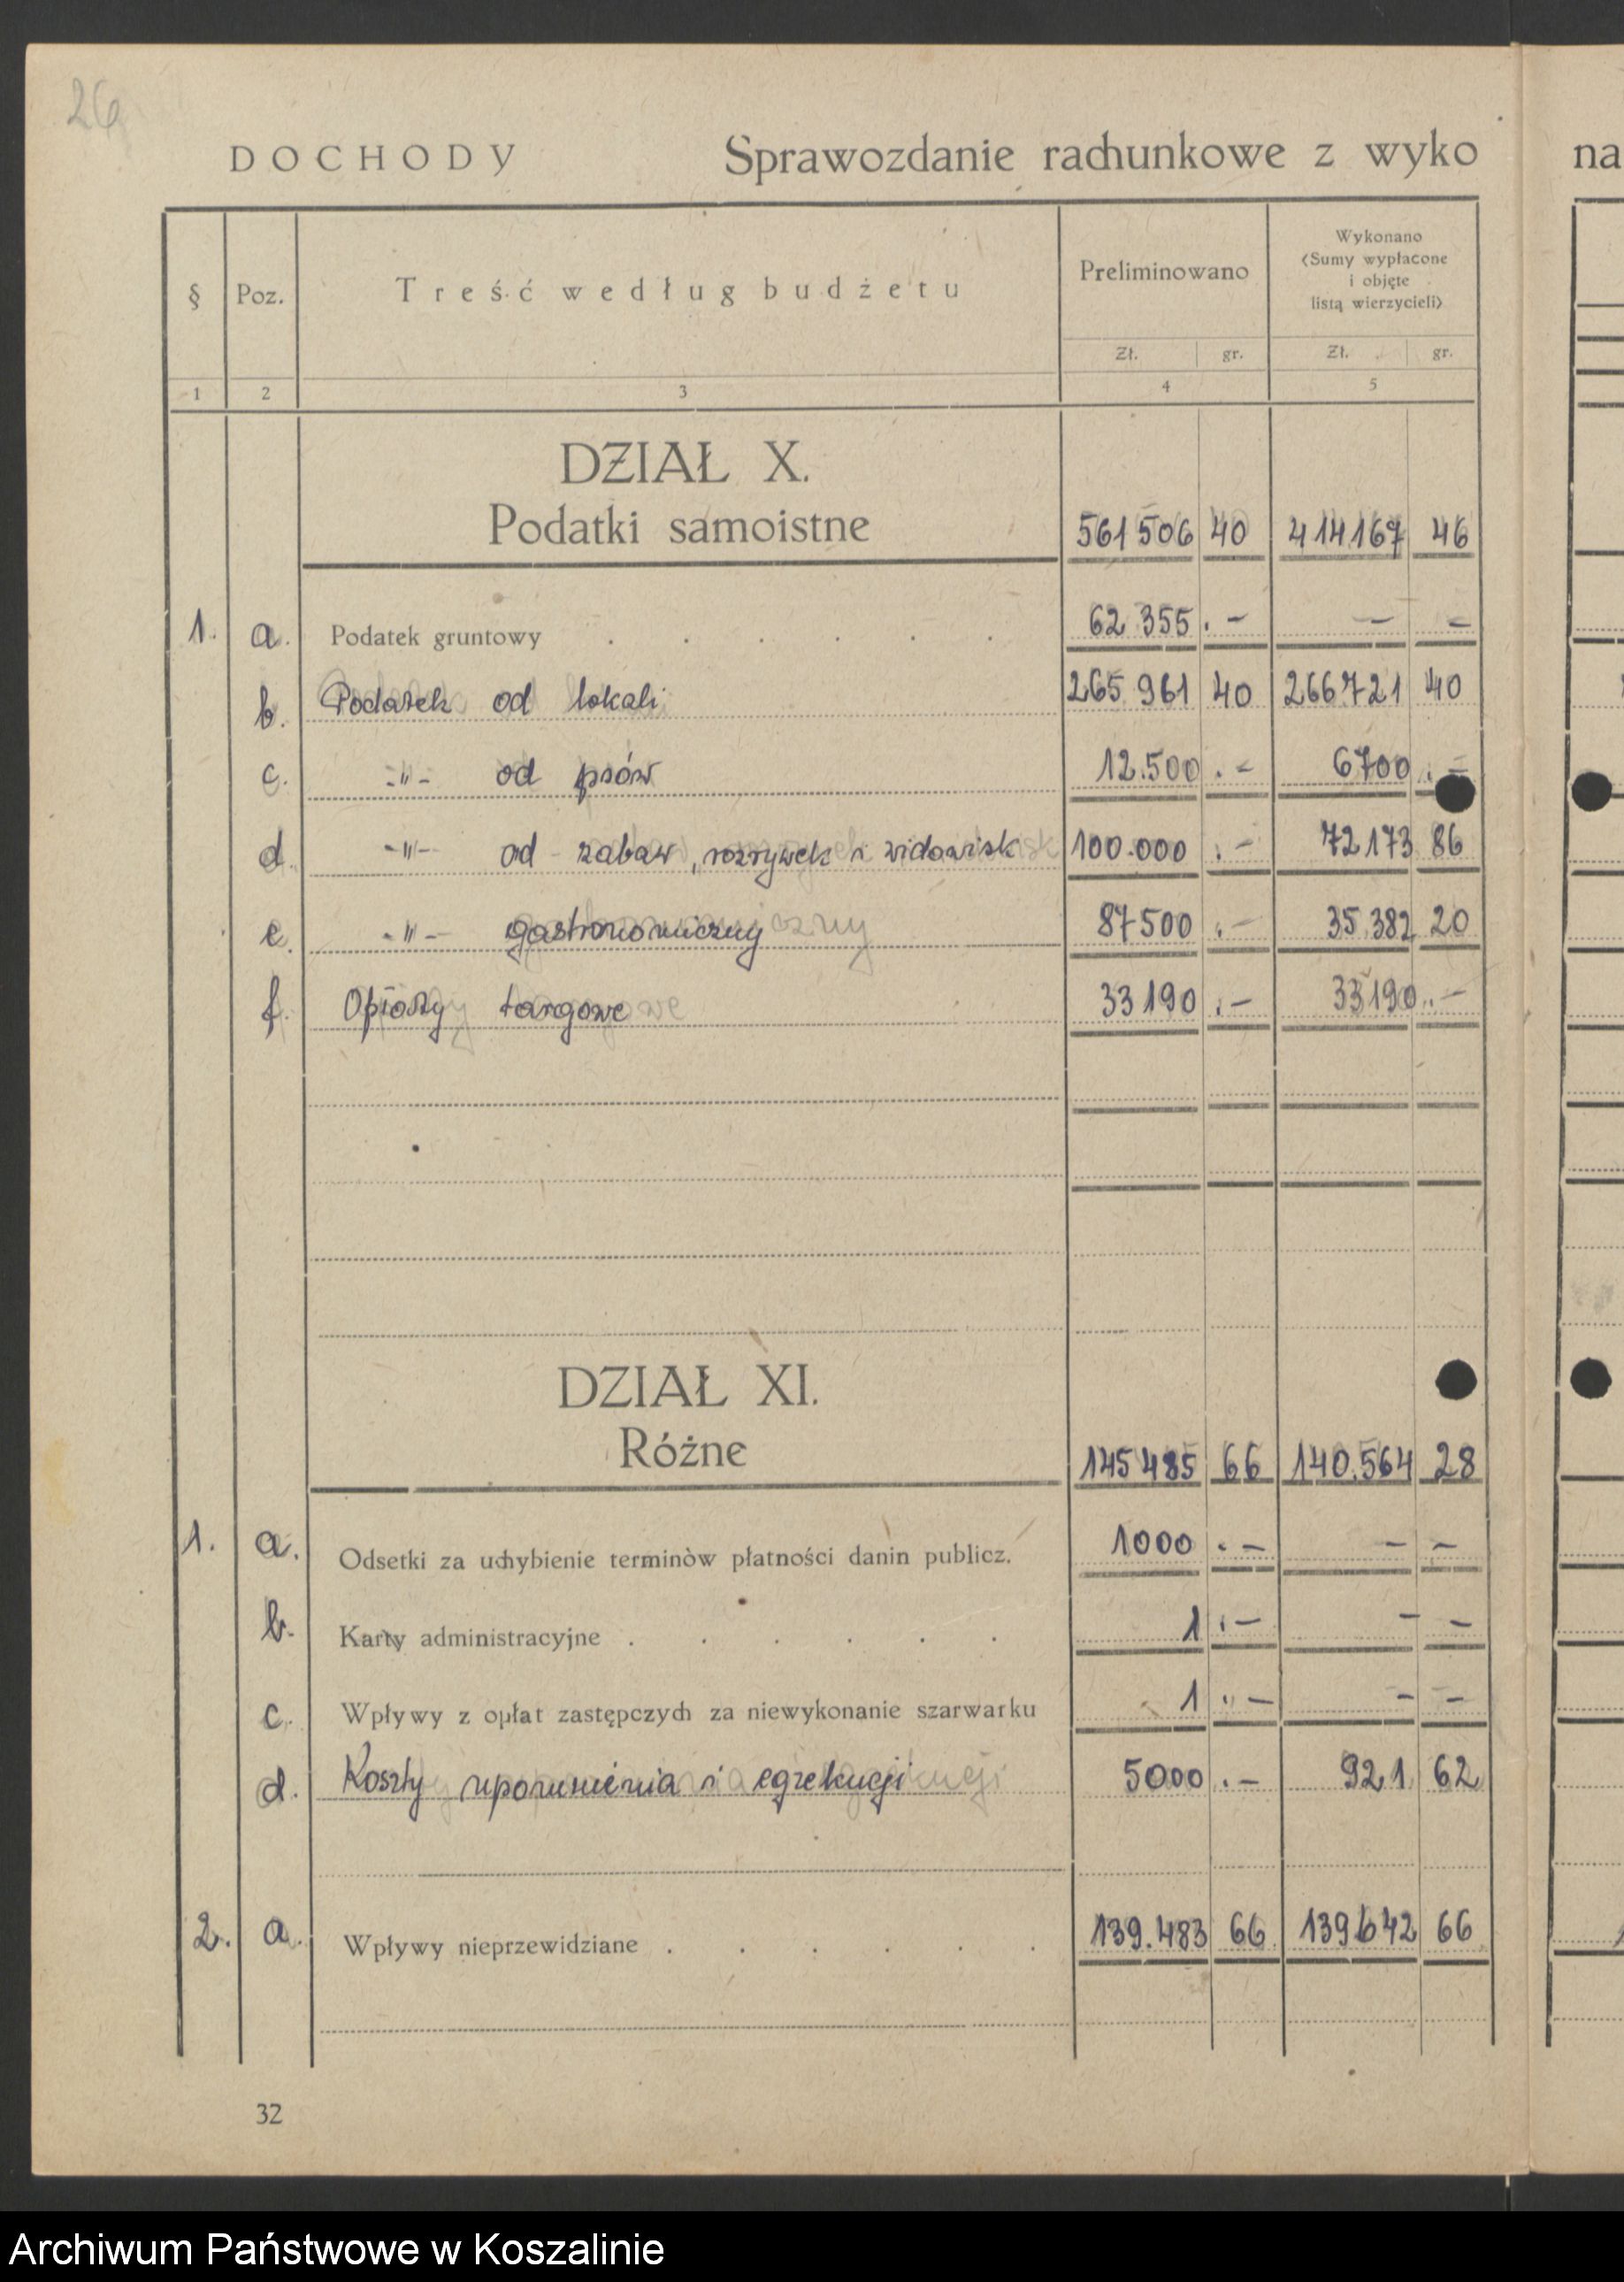 26
DOCHODY Sprawozdanie rachunkowe z wyko na
§ Poz. Treść według budżetu Preliminowano Wykonano
(Sumy wypłacone
i objęte
listą wierzycieli)
Zł. gr. Zł. gr.
1 2 3 4 5
DZIAŁ X.
Podatki samoistne 561 506 40 414 167 46
1. a. Podatek gruntowy 62 355 . – – –
b. Podatek od lokali 265 961 40 266721 40
c. -"- od psów 12.500 . – 6700 . –
d. -"- od zabaw, rozrywek i widowisk 100.000 . – 72173 86
e. -"- gastronomiczny 87500 . – 35.382 20
f. Opłaty targowe 33190 . – 33190 . –
DZIAŁ XI.
Różne 145485 66 140.564 28
1. a. Odsetki za uchybienie terminòw płatności danin publicz. 1000 . – – –
b. Karty administracyjne 1 . – – –
c. Wpływy z opłat zastępczych za niewykonanie szarwarku 1 . – – –
d. Koszty upomnienia i egzekucji 5000 . – 921 62
2. a. Wpływy nieprzewidziane 139.483 66 139642 66
32
Archiwum Państwowe w Koszalinie